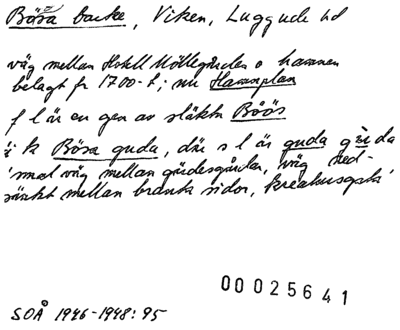 Bösa backe, Viken, Luggude hd
väg mellan Hotell Möllegården o hamnen
belagt fr 1700-t; nu Hamnplan
f l är en gen av släktn Böös
i k Bösa guda, där s l är guda gida
'smal väg mellan gärdesgårdar, väg ned-
sänkt mellan branta sidor, kreatursgata'
00025641
SOÅ 1946-1948:95